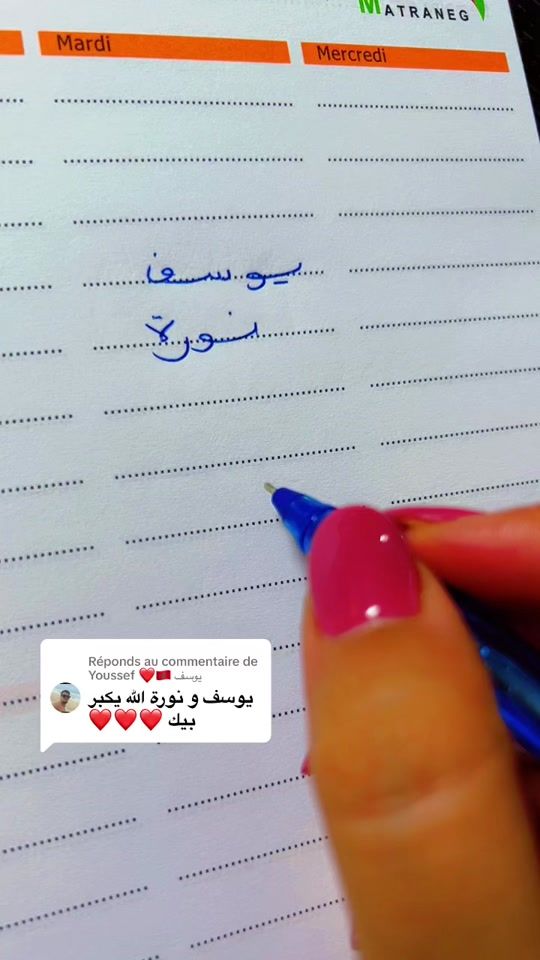 MATRANEG
Mardi
Mercredi
يوسف
نورة
Réponds au commentaire de
Youssef ❤️🇲🇦 يوسف
يوسف و نورة الله يكبر
بيك ❤️❤️❤️